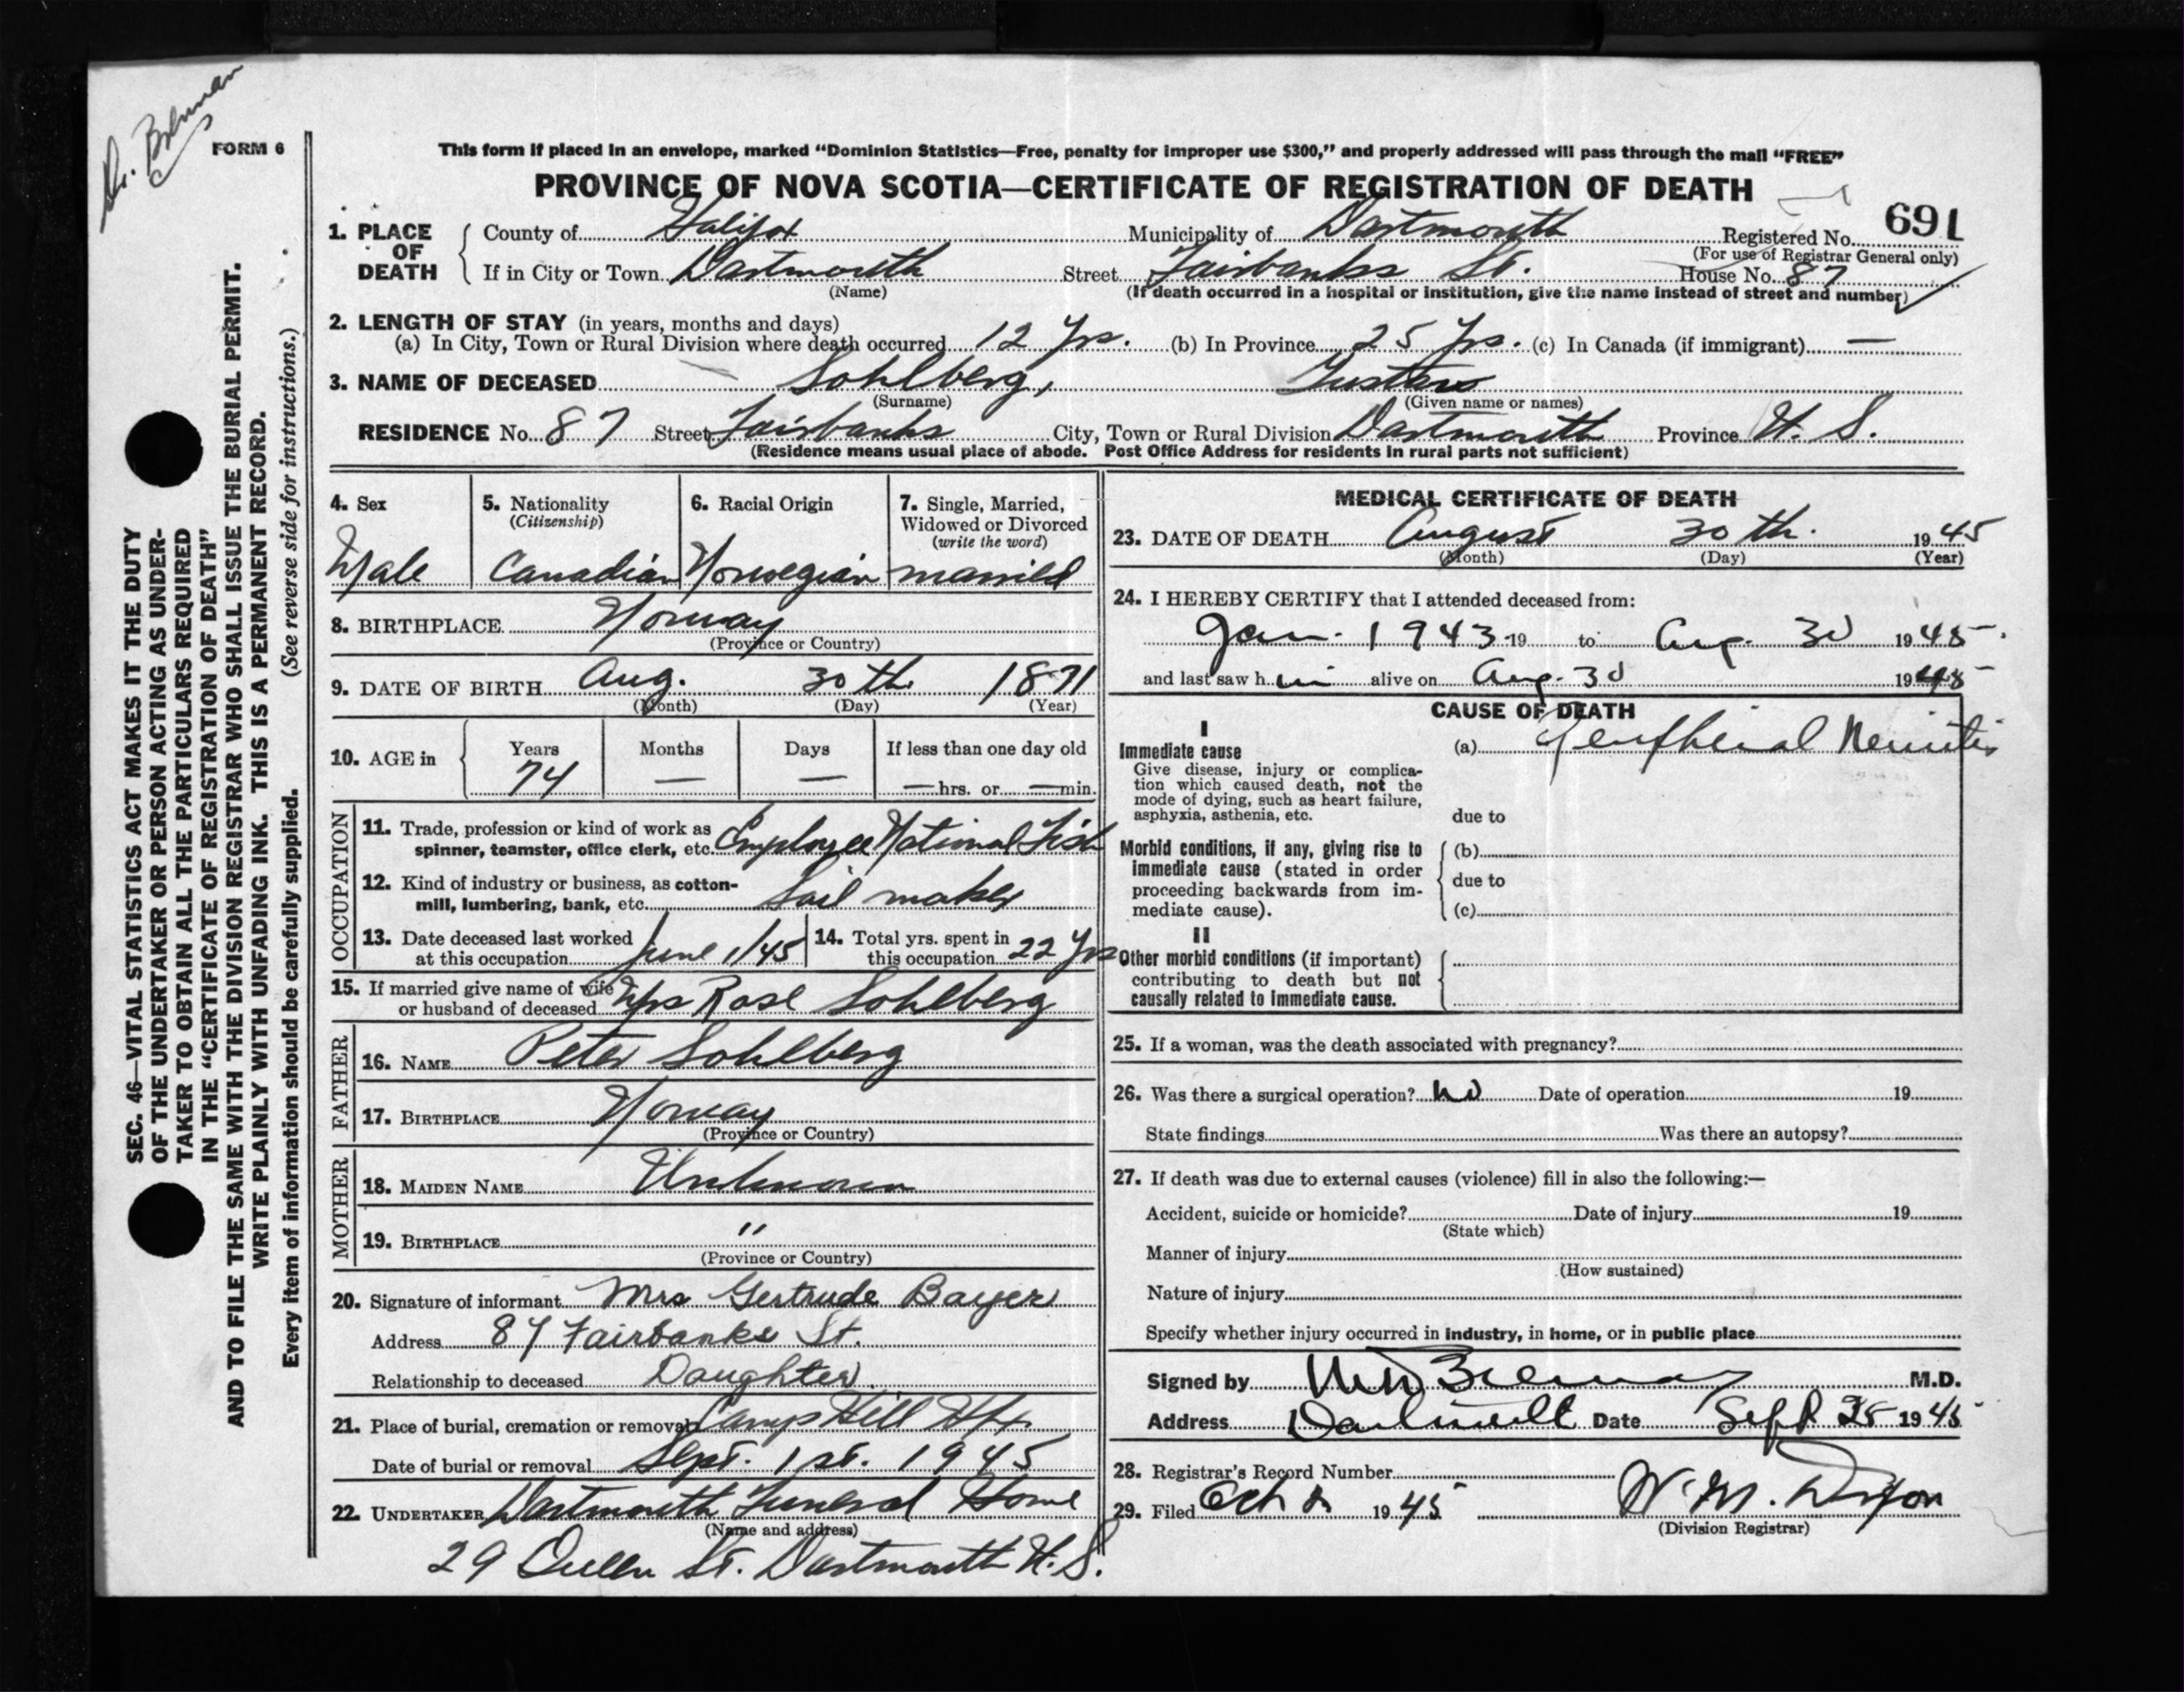 Dr. Brennan
FORM 6
SEC. 46—VITAL STATISTICS ACT MAKES IT THE DUTY
OF THE UNDERTAKER OR PERSON ACTING AS UNDER-
TAKER TO OBTAIN ALL THE PARTICULARS REQUIRED
IN THE "CERTIFICATE OF REGISTRATION OF DEATH"
AND TO FILE THE SAME WITH THE DIVISION REGISTRAR WHO SHALL ISSUE THE BURIAL PERMIT.
WRITE PLAINLY WITH UNFADING INK. THIS IS A PERMANENT RECORD.
Every item of information should be carefully supplied. (See reverse side for instructions.)
This form if placed in an envelope, marked "Dominion Statistics—Free, penalty for improper use $300," and properly addressed will pass through the mail "FREE"
PROVINCE OF NOVA SCOTIA—CERTIFICATE OF REGISTRATION OF DEATH
1. PLACE OF DEATH County of Halifax Municipality of Dartmouth Registered No. 691
(For use of Registrar General only)
If in City or Town Dartmouth Street Fairbanks St. House No. 87
(Name) (If death occurred in a hospital or institution, give the name instead of street and number)
2. LENGTH OF STAY (in years, months and days)
(a) In City, Town or Rural Division where death occurred 12 Yrs. (b) In Province 25 Yrs. (c) In Canada (if immigrant) —
3. NAME OF DECEASED Sohlberg, Gustave
(Surname) (Given name or names)
RESIDENCE No. 87 Street Fairbanks City, Town or Rural Division Dartmouth Province N. S.
(Residence means usual place of abode. Post Office Address for residents in rural parts not sufficient)
4. Sex 5. Nationality (Citizenship) 6. Racial Origin 7. Single, Married, Widowed or Divorced (write the word)
Male Canadian Norwegian married
8. BIRTHPLACE Norway
(Province or Country)
9. DATE OF BIRTH Aug. 30th 1871
(Month) (Day) (Year)
10. AGE in Years Months Days If less than one day old
74 — — — hrs. or — min.
OCCUPATION
11. Trade, profession or kind of work as
spinner, teamster, office clerk, etc. Employee National Fish
12. Kind of industry or business, as cotton-
mill, lumbering, bank, etc. Sail maker
13. Date deceased last worked
at this occupation June 1/45
14. Total yrs. spent in
this occupation 22 Yrs
15. If married give name of wife
or husband of deceased Mrs Rose Sohlberg
FATHER
16. NAME Peter Sohlberg
17. BIRTHPLACE Norway
(Province or Country)
MOTHER
18. MAIDEN NAME Unknown
19. BIRTHPLACE "
(Province or Country)
20. Signature of informant Mrs Gertrude Bayer
Address 87 Fairbanks St.
Relationship to deceased Daughter.
21. Place of burial, cremation or removal Camp Hill Hfx.
Date of burial or removal Sept. 1st. 1945
22. UNDERTAKER Dartmouth Funeral Home
(Name and address)
29 Queen St. Dartmouth N. S.
MEDICAL CERTIFICATE OF DEATH
23. DATE OF DEATH August 30th. 1945
(Month) (Day) (Year)
24. I HEREBY CERTIFY that I attended deceased from:
Jan. 1943 19 to Aug. 30 1945.
and last saw h im alive on Aug. 30 1945
CAUSE OF DEATH
I
Immediate cause
Give disease, injury or complica-
tion which caused death, not the
mode of dying, such as heart failure,
asphyxia, asthenia, etc.
(a) Peripheral Neuritis
due to
Morbid conditions, if any, giving rise to
immediate cause (stated in order
proceeding backwards from im-
mediate cause).
(b)
due to
(c)
II
Other morbid conditions (if important)
contributing to death but not
causally related to immediate cause.
25. If a woman, was the death associated with pregnancy?
26. Was there a surgical operation? No Date of operation 19
State findings Was there an autopsy?
27. If death was due to external causes (violence) fill in also the following:—
Accident, suicide or homicide? Date of injury 19
(State which)
Manner of injury
(How sustained)
Nature of injury
Specify whether injury occurred in industry, in home, or in public place
Signed by Brennan M.D.
Address Dartmouth Date Sept 25 1945
28. Registrar's Record Number
29. Filed Oct 1945 W. M. Dixon
(Division Registrar)